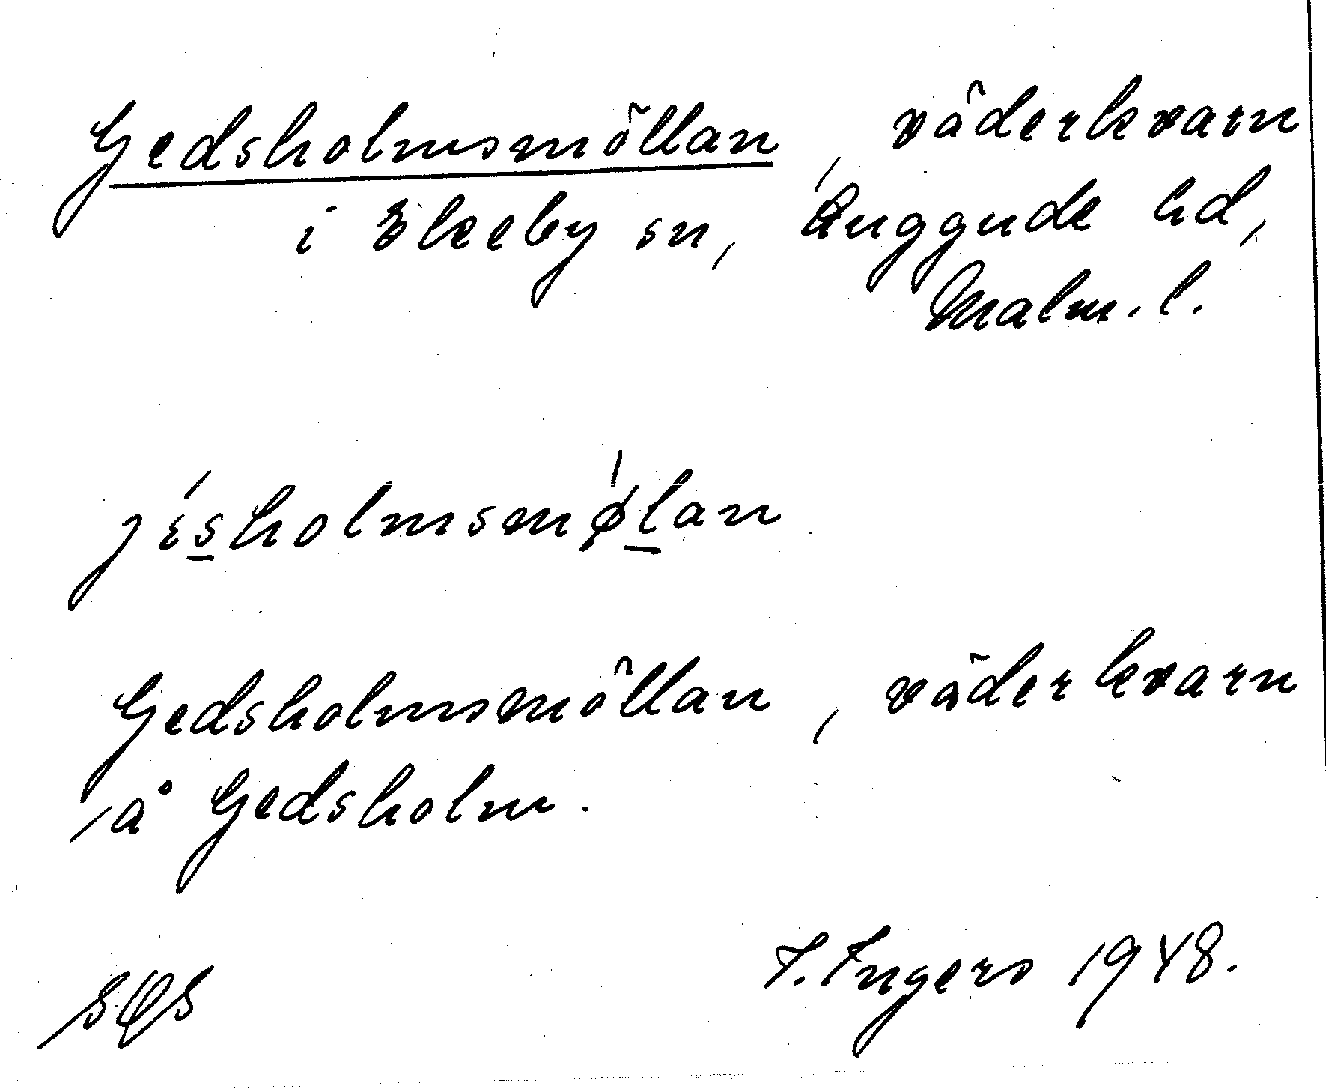 Gedsholmsmöllan, väderkvarn
i Ekeby sn, Luggude hd,
Malm. l.
jésholmsmǿlan
Gedsholmsmöllan, väderkvarn
å Gedsholm.
I. Ingers 1948.